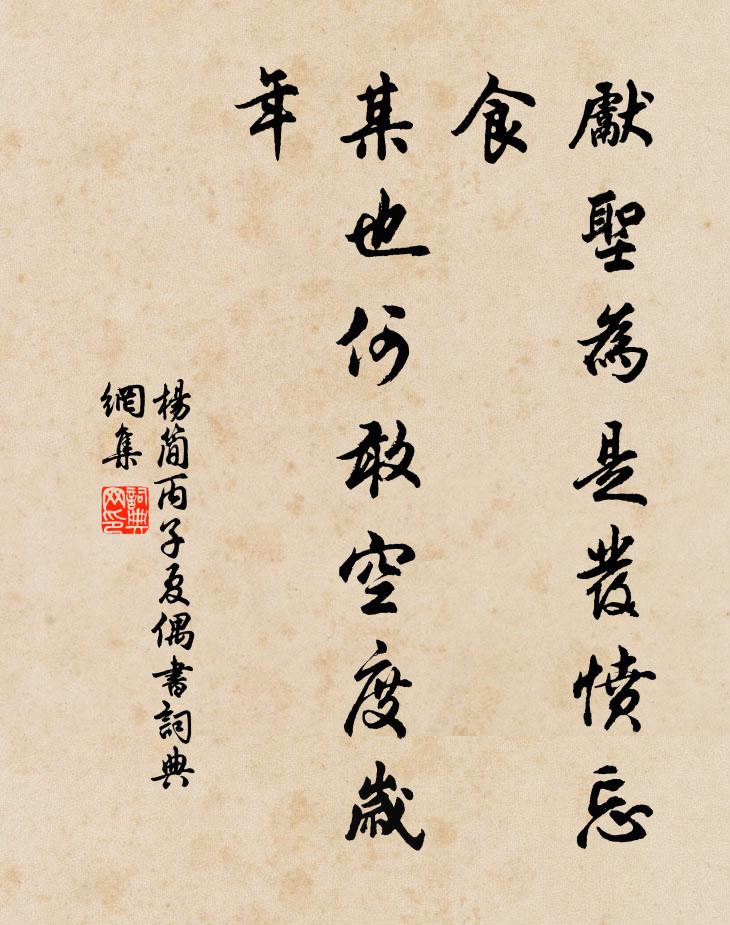 獻聖為是發憤忘
食
某也何敢空度歲
年
楊簡丙子夏偶書詞典
網集
詞典
网印